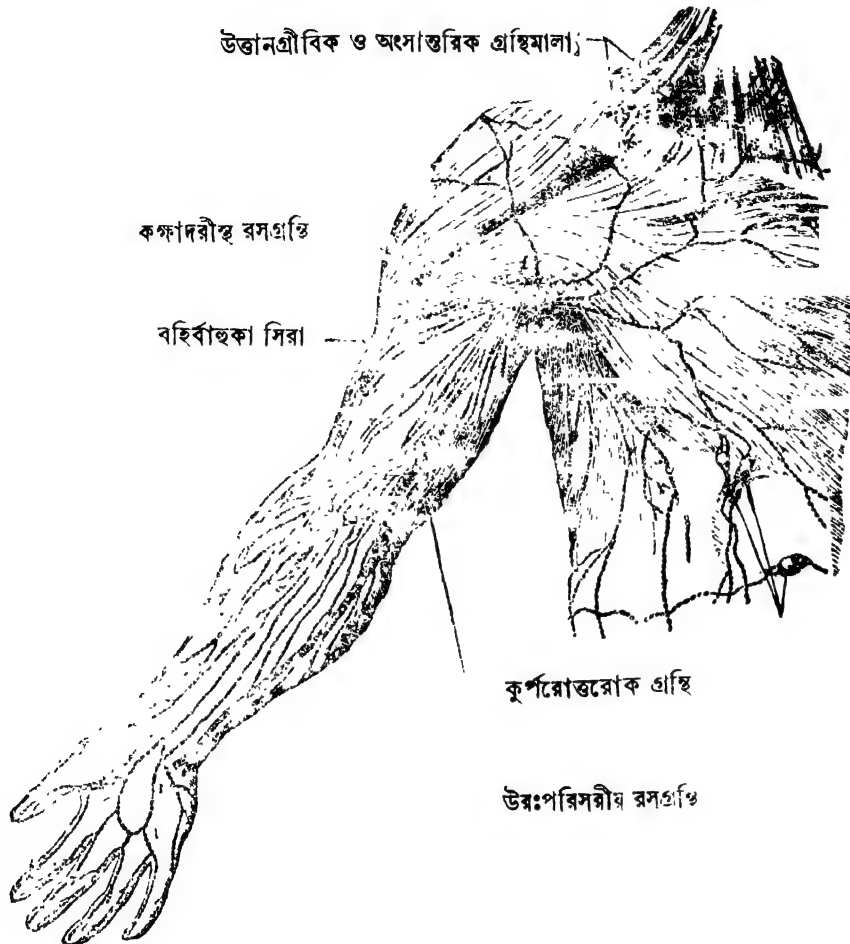 উত্তানগ্রীবিক ও অংসান্তরিক গ্রন্থিমালা
কক্ষাদরীস্থ রসগ্রন্থি
বহির্বাহুকা সিরা
কুর্পরোত্তরোক গ্রন্থি
উরঃপরিসরীয় রসগ্রন্থি